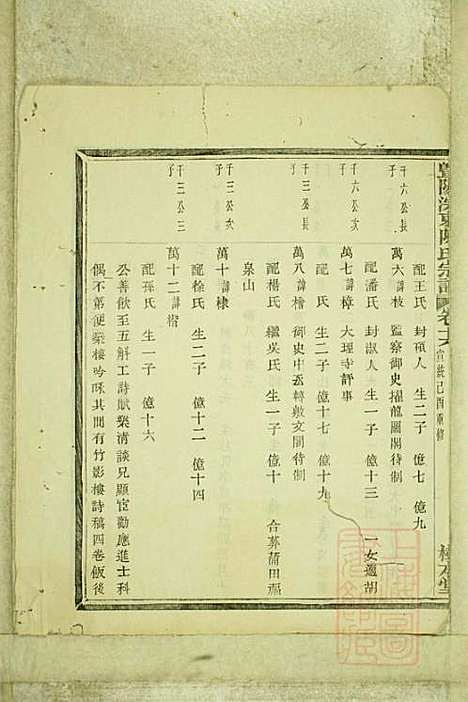 暨陽 東陳氏宗譜 卷十六 宣統己酉重修
千六公長子
配王氏 封碩人 生二子 億七 億九
萬六諱枝 監察御史擢龍圖閣待制
千六公次子
配潘氏 封淑人 生一子 億十三 一女適胡
萬七諱樟 大理寺評事
千三公長子
配 氏 生二子 億十七 億十九
萬八諱檜 御史中丞轉敷文閣待制
配楊氏 繼吳氏 生一子 億十 合葬莆田
泉山
千三公次子
萬十諱棣
配徐氏 生二子 億十二 億十四
千三公三子
萬十二諱楷
配孫氏 生一子 億十六
公善飲至五斛工詩賦樂清談兄顯宦勸應進士科
偶不第便築樓吟咏其間有竹影樓詩稿四卷飯後